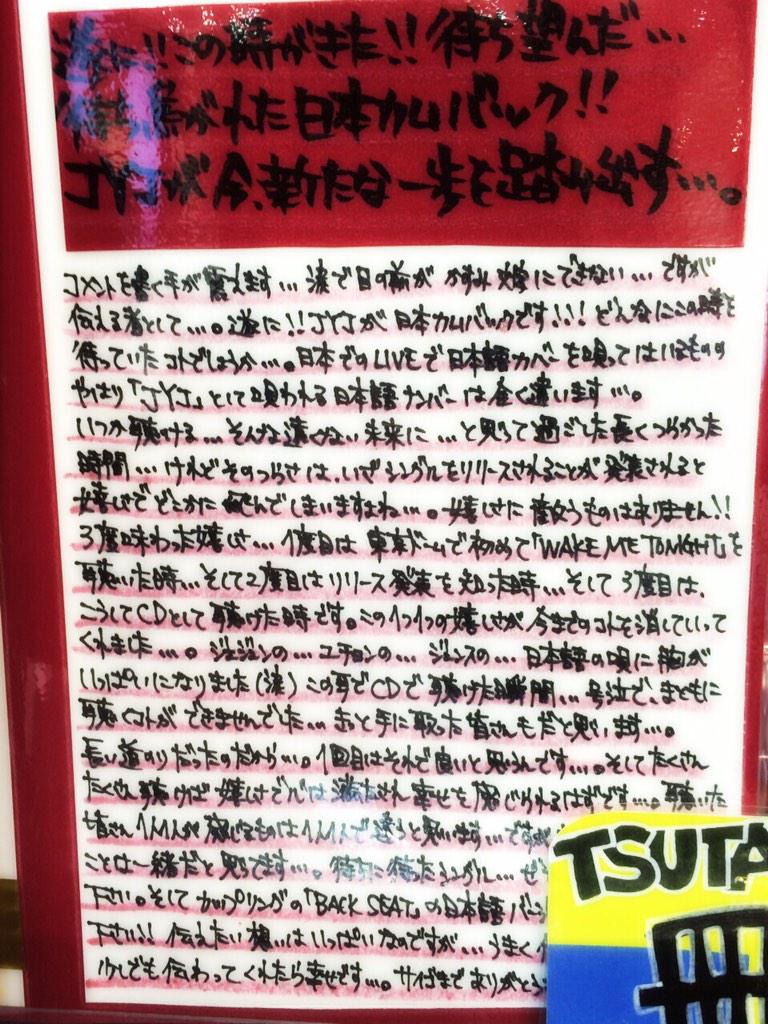 遂に!!この時がきた!!待ち望んだ…
待ち焦がれた日本カムバック!!
JYJが今、新たな一歩を踏み出す…。
コメントを書く手が震えます…涙で目の前がかすみ文字にできない…ですが
伝える者として…。遂に!!JYJが日本カムバックです!!!どんなにこの時を
待っていたコトでしょうか…。日本でのLIVEで日本語カバーを唄ってはいるものの
やはり「JYJ」として唄われる日本語ナンバーは全く違います…。
いつか聴ける…そんな遠くない未来に…と思って過ごした長くつらかった
時間…けれどそのつらさは、いざシングルをリリースされることが発表されると
嬉しさでどこかに飛んでしまいますよね…。嬉しさに敵うものはありません!!
3度味わった嬉しさ…1度目は東京ドームで初めて「WAKE ME TONIGHT」を
聴いた時…そして2度目はリリース発表を知った時…そして3度目は、
こうしてCDとして聴けた時です。この1つ1つの嬉しさが今までのコトを消していって
くれました…。ジェジュンの…ユチョンの…ジュンスの…日本語の唄に胸が
いっぱいになりました(涙)この耳でCDで聴けた瞬間…号泣で、まともに
聴くコトができませんでした…きっと手に取った皆さんもだと思います…。
長い道のりだったのだから…。1回目はそれで良いと思うんです…。そしてたくさん
たくさん聴けば嬉しさで心は満たされ幸せを感じられるはずです…。聴いた
皆さん1人1人が感じるものは1人1人で違うと思います…ですが
ことは一緒だと思ってます…。待ちに待ったシングル…ぜ
下さい。そしてカップリングの「BACK SEAT」の日本語バー
下さい!!伝えたい想いはいっぱいなのですが…うまく
少しでも伝わってくれたら幸せです…。サイゴまでありがとう
TSUTA